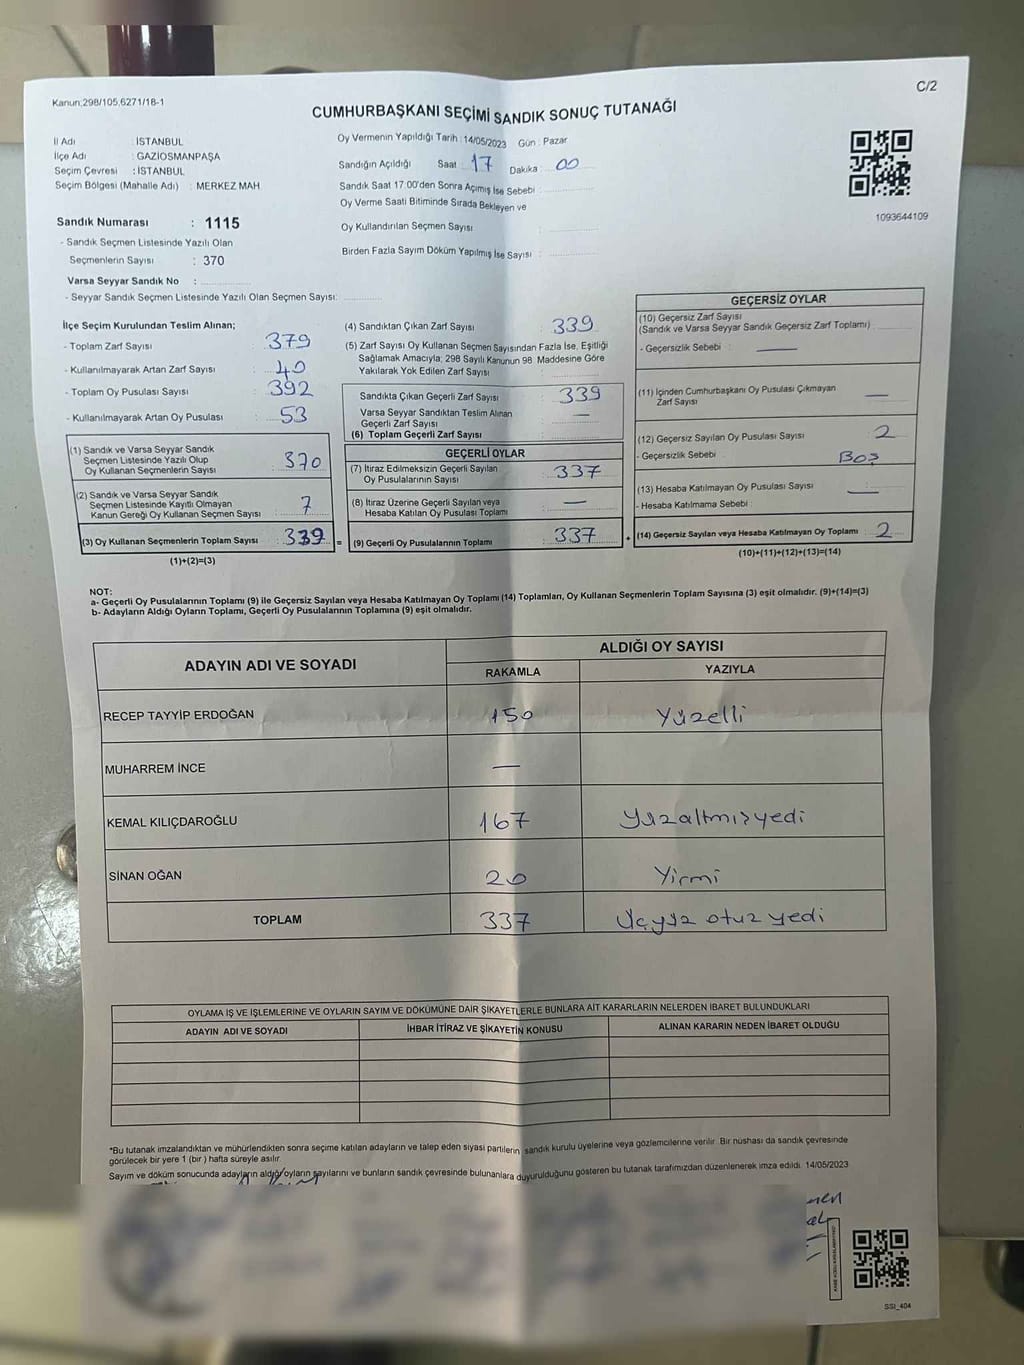 Kanun:298/105,6271/18-1
C/2
CUMHURBAŞKANI SEÇİMİ SANDIK SONUÇ TUTANAĞI
İl Adı : İSTANBUL
İlçe Adı : GAZİOSMANPAŞA
Seçim Çevresi : İSTANBUL
Seçim Bölgesi (Mahalle Adı) : MERKEZ MAH.
Oy Vermenin Yapıldığı Tarih : 14/05/2023 Gün : Pazar
Sandığın Açıldığı Saat : 17 Dakika : 00
Sandık Saat 17:00'den Sonra Açımış İse Sebebi :
Oy Verme Saati Bitiminde Sırada Bekleyen ve
Oy Kullandırılan Seçmen Sayısı :
Birden Fazla Sayım Döküm Yapılmış İse Sayısı :
1093644109
Sandık Numarası : 1115
- Sandık Seçmen Listesinde Yazılı Olan
Seçmenlerin Sayısı : 370
Varsa Seyyar Sandık No :
- Seyyar Sandık Seçmen Listesinde Yazılı Olan Seçmen Sayısı:
İlçe Seçim Kurulundan Teslim Alınan;
- Toplam Zarf Sayısı : 379
- Kullanılmayarak Artan Zarf Sayısı : 40
- Toplam Oy Pusulası Sayısı : 392
- Kullanılmayarak Artan Oy Pusulası : 53
(1) Sandık ve Varsa Seyyar Sandık
Seçmen Listesinde Yazılı Olup
Oy Kullanan Seçmenlerin Sayısı : 370
(2) Sandık ve Varsa Seyyar Sandık
Seçmen Listesinde Kayıtlı Olmayan
Kanun Gereği Oy Kullanan Seçmen Sayısı : 7
(3) Oy Kullanan Seçmenlerin Toplam Sayısı : 339 =
(1)+(2)=(3)
(4) Sandıktan Çıkan Zarf Sayısı : 339
(5) Zarf Sayısı Oy Kullanan Seçmen Sayısından Fazla İse, Eşitliği
Sağlamak Amacıyla; 298 Sayılı Kanunun 98. Maddesine Göre
Yakılarak Yok Edilen Zarf Sayısı :
Sandıkta Çıkan Geçerli Zarf Sayısı : 339
Varsa Seyyar Sandıktan Teslim Alınan
Geçerli Zarf Sayısı : —
(6) Toplam Geçerli Zarf Sayısı :
GEÇERLİ OYLAR
(7) İtiraz Edilmeksizin Geçerli Sayılan
Oy Pusulalarının Sayısı : 337
(8) İtiraz Üzerine Geçerli Sayılan veya
Hesaba Katılan Oy Pusulası Toplamı : —
(9) Geçerli Oy Pusulalarının Toplamı : 337 +
GEÇERSİZ OYLAR
(10) Geçersiz Zarf Sayısı
(Sandık ve Varsa Seyyar Sandık Geçersiz Zarf Toplamı) :
- Geçersizlik Sebebi : —
(11) İçinden Cumhurbaşkanı Oy Pusulası Çıkmayan
Zarf Sayısı : —
(12) Geçersiz Sayılan Oy Pusulası Sayısı : 2
- Geçersizlik Sebebi : Boş
(13) Hesaba Katılmayan Oy Pusulası Sayısı : —
- Hesaba Katılmama Sebebi :
(14) Geçersiz Sayılan veya Hesaba Katılmayan Oy Toplamı : 2
(10)+(11)+(12)+(13)=(14)
NOT:
a- Geçerli Oy Pusulalarının Toplamı (9) ile Geçersiz Sayılan veya Hesaba Katılmayan Oy Toplamı (14) Toplamları, Oy Kullanan Seçmenlerin Toplam Sayısına (3) eşit olmalıdır. (9)+(14)=(3)
b- Adayların Aldığı Oyların Toplamı, Geçerli Oy Pusulalarının Toplamına (9) eşit olmalıdır.
ADAYIN ADI VE SOYADI
ALDIĞI OY SAYISI
RAKAMLA YAZIYLA
RECEP TAYYİP ERDOĞAN 150 Yüzelli
MUHARREM İNCE —
KEMAL KILIÇDAROĞLU 167 Yüzaltmışyedi
SİNAN OĞAN 20 Yirmi
TOPLAM 337 Üçyüz otuz yedi
OYLAMA İŞ VE İŞLEMLERİNE VE OYLARIN SAYIM VE DÖKÜMÜNE DAİR ŞİKAYETLERLE BUNLARA AİT KARARLARIN NELERDEN İBARET BULUNDUKLARI
ADAYIN ADI VE SOYADI İHBAR İTİRAZ VE ŞİKAYETİN KONUSU ALINAN KARARIN NEDEN İBARET OLDUĞU
*Bu tutanak imzalandıktan ve mühürlendikten sonra seçime katılan adayların ve talep eden siyasi partilerin sandık kurulu üyelerine veya gözlemcilerine verilir. Bir nüshası da sandık çevresinde
görülecek bir yere 1 (bir) hafta süreyle asılır.
Sayım ve döküm sonucunda adayların aldığı oyların sayılarını ve bunların sandık çevresinde bulunanlara duyurulduğunu gösteren bu tutanak tarafımızdan düzenlenerek imza edildi. 14/05/2023
SSI_404